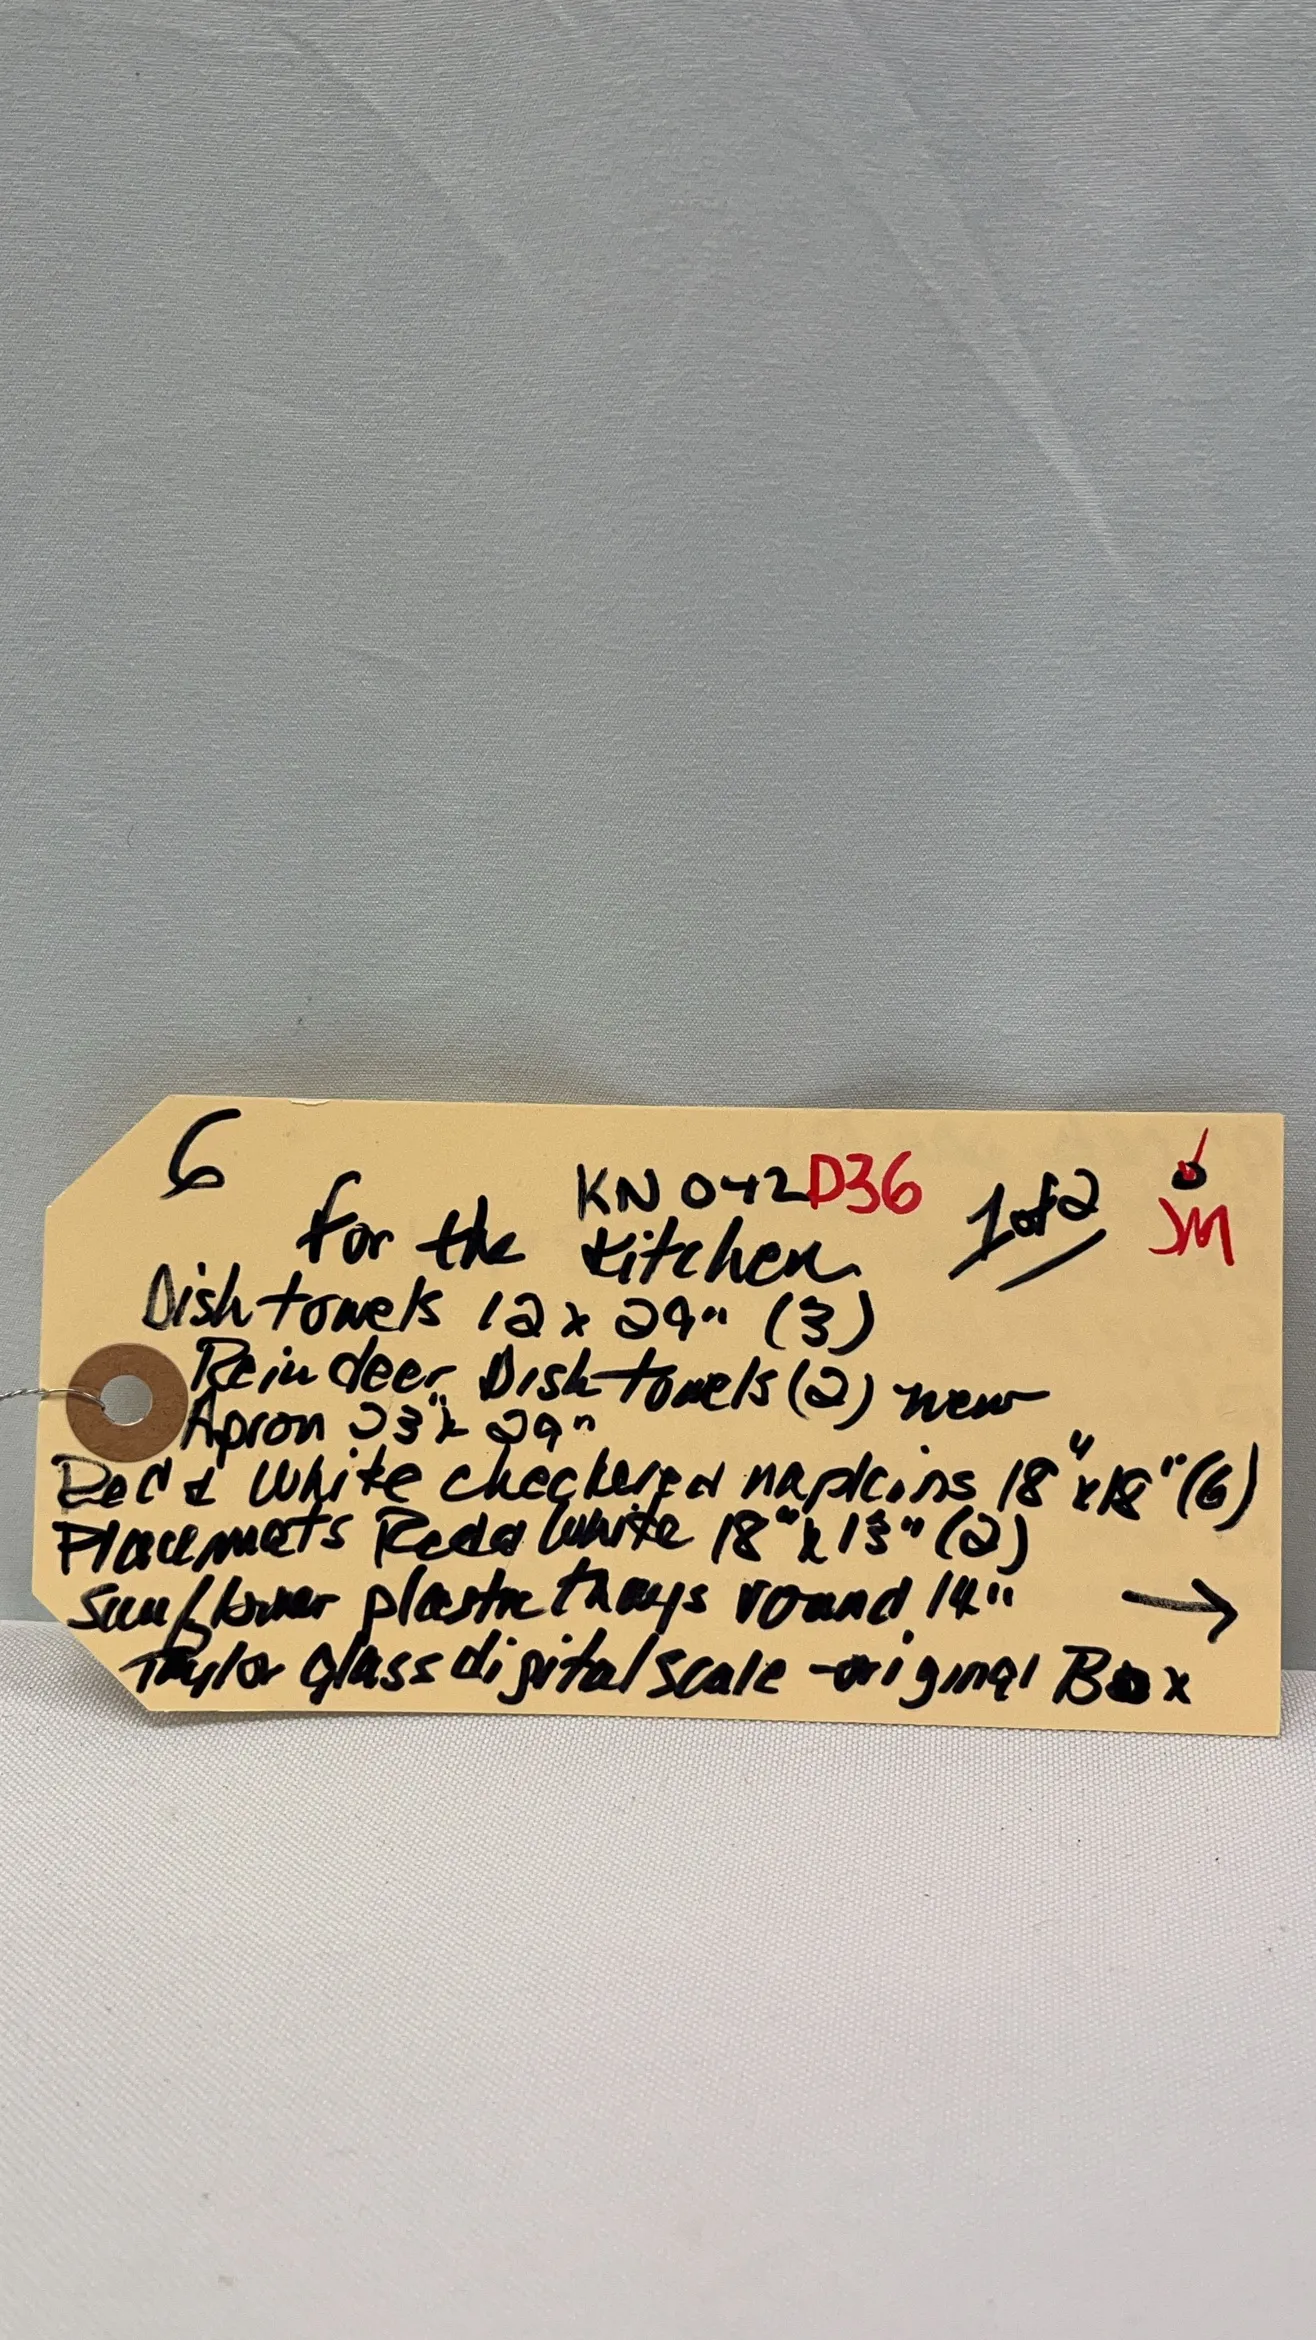 6
KN042D36
1 of 2
JM
for the kitchen
Dish towels 12 x 29" (3)
Reindeer Dish towels (2) new
Apron 23" x 29"
Red & White checkered napkins 18" x 18" (6)
Placemats Red & White 18" x 13" (2)
Sunflower plastic trays round 14" →
Taylor glass digital scale - original Box